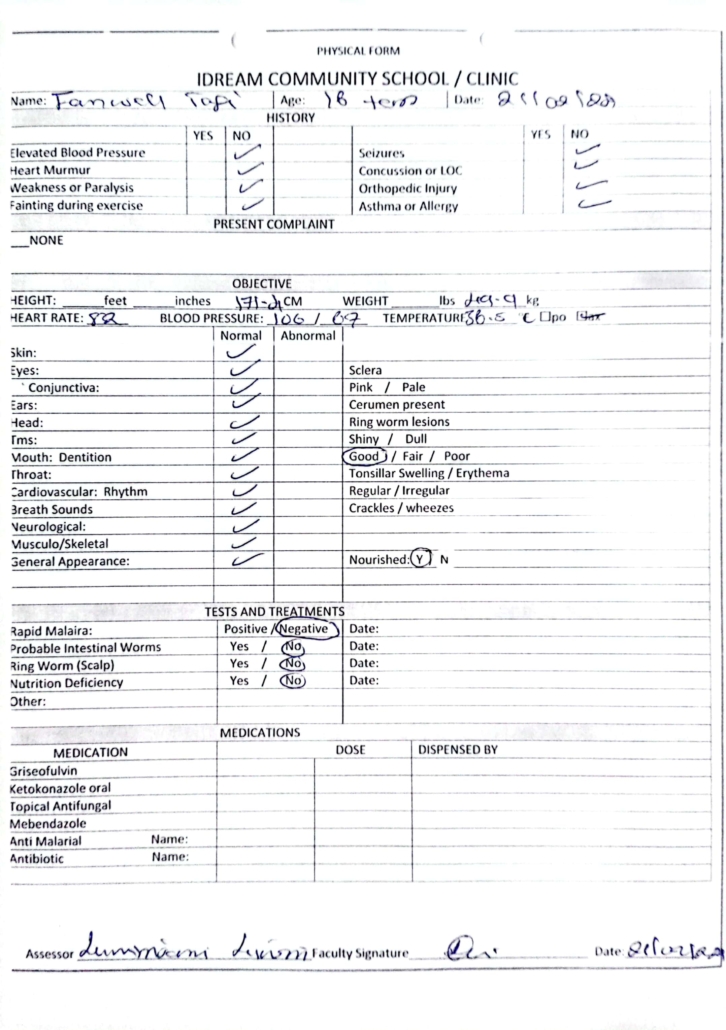 PHYSICAL FORM
IDREAM COMMUNITY SCHOOL / CLINIC
Name: Fanwell Age: 16 Date:
HISTORY
YES NO YES NO
Elevated Blood Pressure ✓ Seizures ✓
Heart Murmur ✓ Concussion or LOC ✓
Weakness or Paralysis ✓ Orthopedic Injury ✓
Fainting during exercise ✓ Asthma or Allergy ✓
PRESENT COMPLAINT
__NONE
OBJECTIVE
HEIGHT: ______feet ______inches CM WEIGHT ______lbs kg
HEART RATE: BLOOD PRESSURE: 106 / 67 TEMPERATURE 36.5 C □po □ax
Normal Abnormal
Skin: ✓
Eyes: ✓ Sclera
Conjunctiva: ✓ Pink / Pale
Ears: ✓ Cerumen present
Head: ✓ Ring worm lesions
Tms: ✓ Shiny / Dull
Mouth: Dentition ✓ Good / Fair / Poor
Throat: ✓ Tonsillar Swelling / Erythema
Cardiovascular: Rhythm ✓ Regular / Irregular
Breath Sounds ✓ Crackles / wheezes
Neurological: ✓
Musculo/Skeletal ✓
General Appearance: ✓ Nourished: Y N
TESTS AND TREATMENTS
Rapid Malaira: Positive / Negative Date:
Probable Intestinal Worms Yes / No Date:
Ring Worm (Scalp) Yes / No Date:
Nutrition Deficiency Yes / No Date:
Other:
MEDICATIONS
MEDICATION DOSE DISPENSED BY
Griseofulvin
Ketokonazole oral
Topical Antifungal
Mebendazole
Anti Malarial Name:
Antibiotic Name:
Assessor Faculty Signature Date